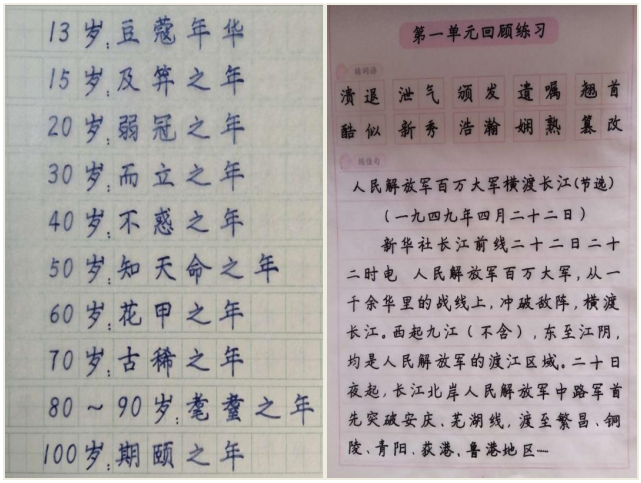 13岁:豆蔻年华
15岁:及笄之年
20岁:弱冠之年
30岁:而立之年
40岁:不惑之年
50岁:知天命之年
60岁:花甲之年
70岁:古稀之年
80～90岁:耄耋之年
100岁:期颐之年
第一单元回顾练习
练词语
溃退 泄气 颁发 遗嘱 翘首
酷似 新秀 浩瀚 娴熟 篡改
练佳句
人民解放军百万大军横渡长江(节选)
(一九四九年四月二十二日)
新华社长江前线二十二日二十
二时电 人民解放军百万大军,从一
千余华里的战线上,冲破敌阵,横渡
长江。西起九江(不含),东至江阴,
均是人民解放军的渡江区域。二十日
夜起,长江北岸人民解放军中路军首
先突破安庆、芜湖线,渡至繁昌、铜
陵、青阳、荻港、鲁港地区……